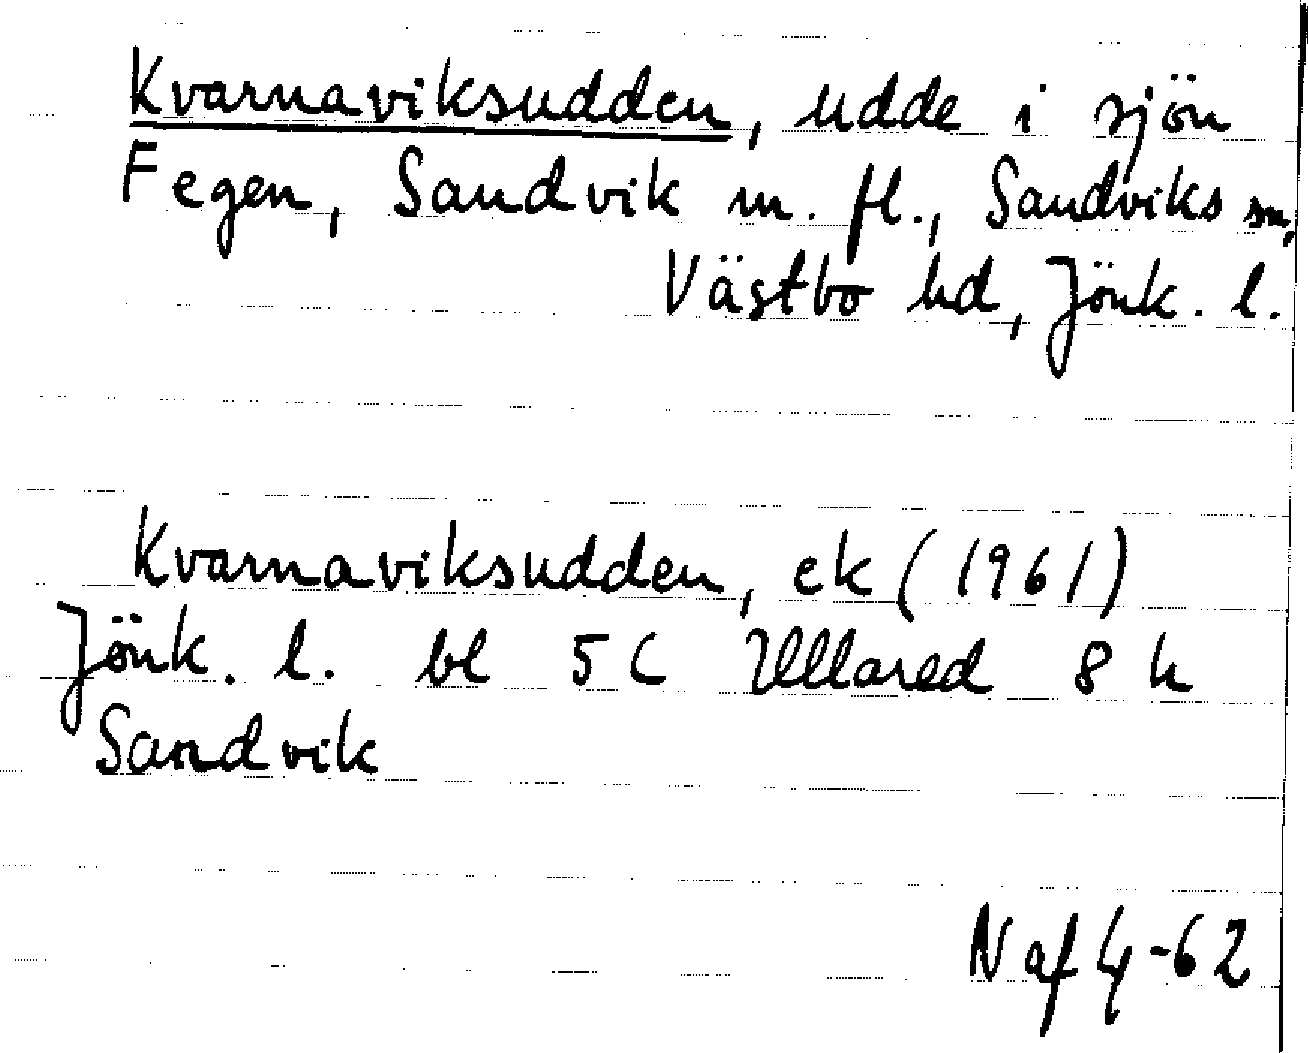 Kvarnaviksudden, udde i sjön
Fegen, Sandvik m. fl., Sandviks sn,
Västbo hd, Jönk. l.
Kvarnaviksudden, ek (1961)
Jönk. l. bl 5 C Ullared 8 h
Sandvik
N af 4-62